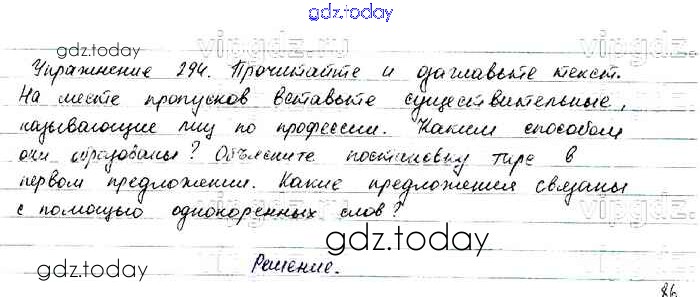 gdz.today
gdz.today vipgdz.ru vipgdz
Упражнение 294. Прочитайте и озаглавьте текст.
На месте пропусков вставьте существительные,
называющие лиц по профессии. Каким способом
они образованы? Объясните постановку тире в
первом предложении. Какие предложения связаны
с помощью однокоренных слов?
vipgdz
gdz.today
gdz.today
Решение.
86